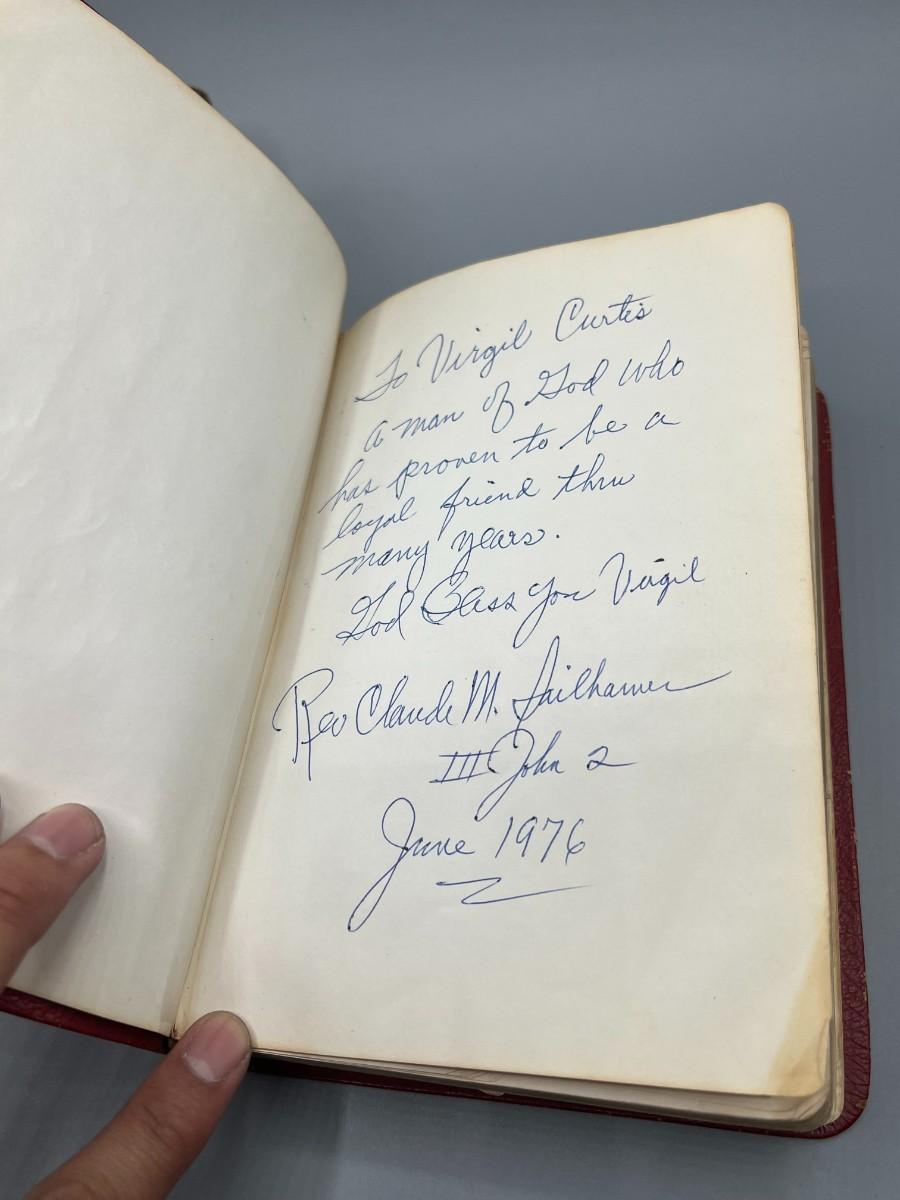 To Virgil Curtis
a man of God who
has proven to be a
loyal friend thru
many years.
God Bless You Virgil
Rev Claude M. Failhamer
III John 2
June 1976